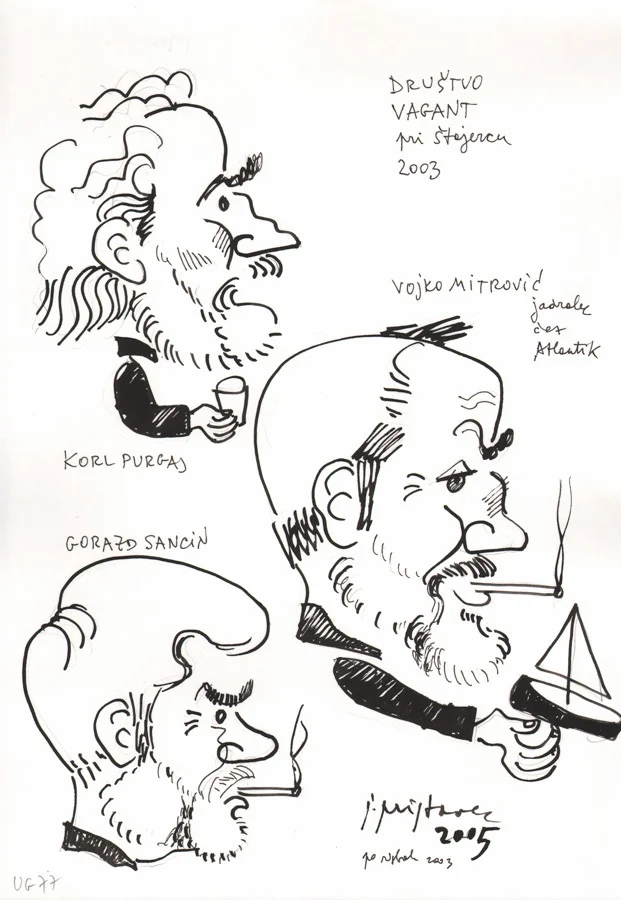 DRUŠTVO
VAGANT
pri Štajercu
2003
VOJKO MITROVIĆ
jadralec
čez
Atlantik
KORL PURGAJ
GORAZD SANCIN
2005
2003
UG 77